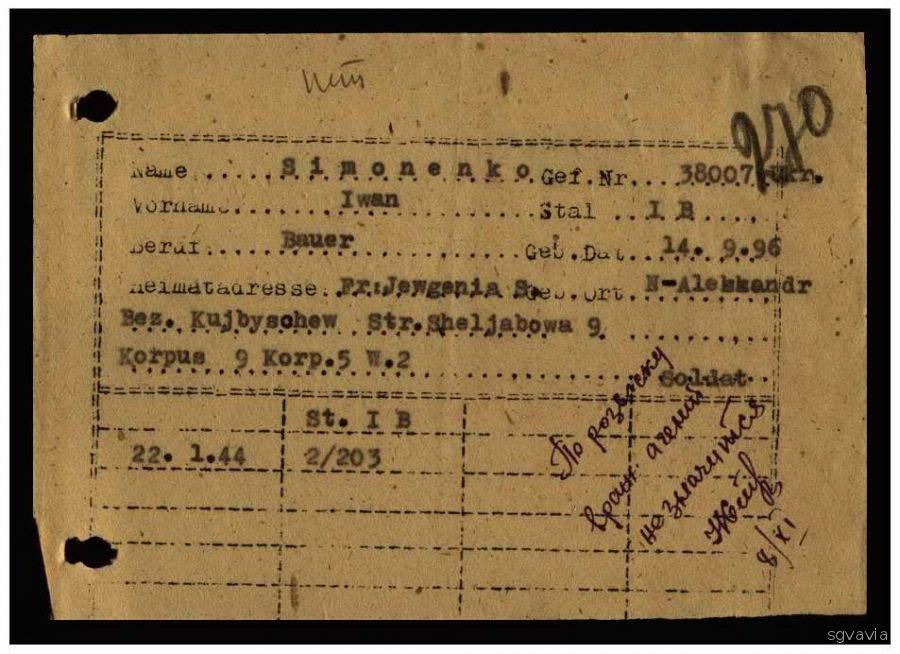 нет
270
Name..... Simonenko Gef.Nr. 38007 Ukr.
Vorname......... Iwan ......... Stal .. I B ....
Beruf..... Bauer ......... Geb.Dat. 14. 9.96
Heimatadresse. Fr:Jewgenia S. Geb.Ort. N-Aleksandr
Bez. Kujbyschew Str.Sheljabowa 9
Korpus 9 Korp.5 W.2
Soldat
St. I B
22. 1.44 2/203
По розыску
не значится
8/XI
sgvavia